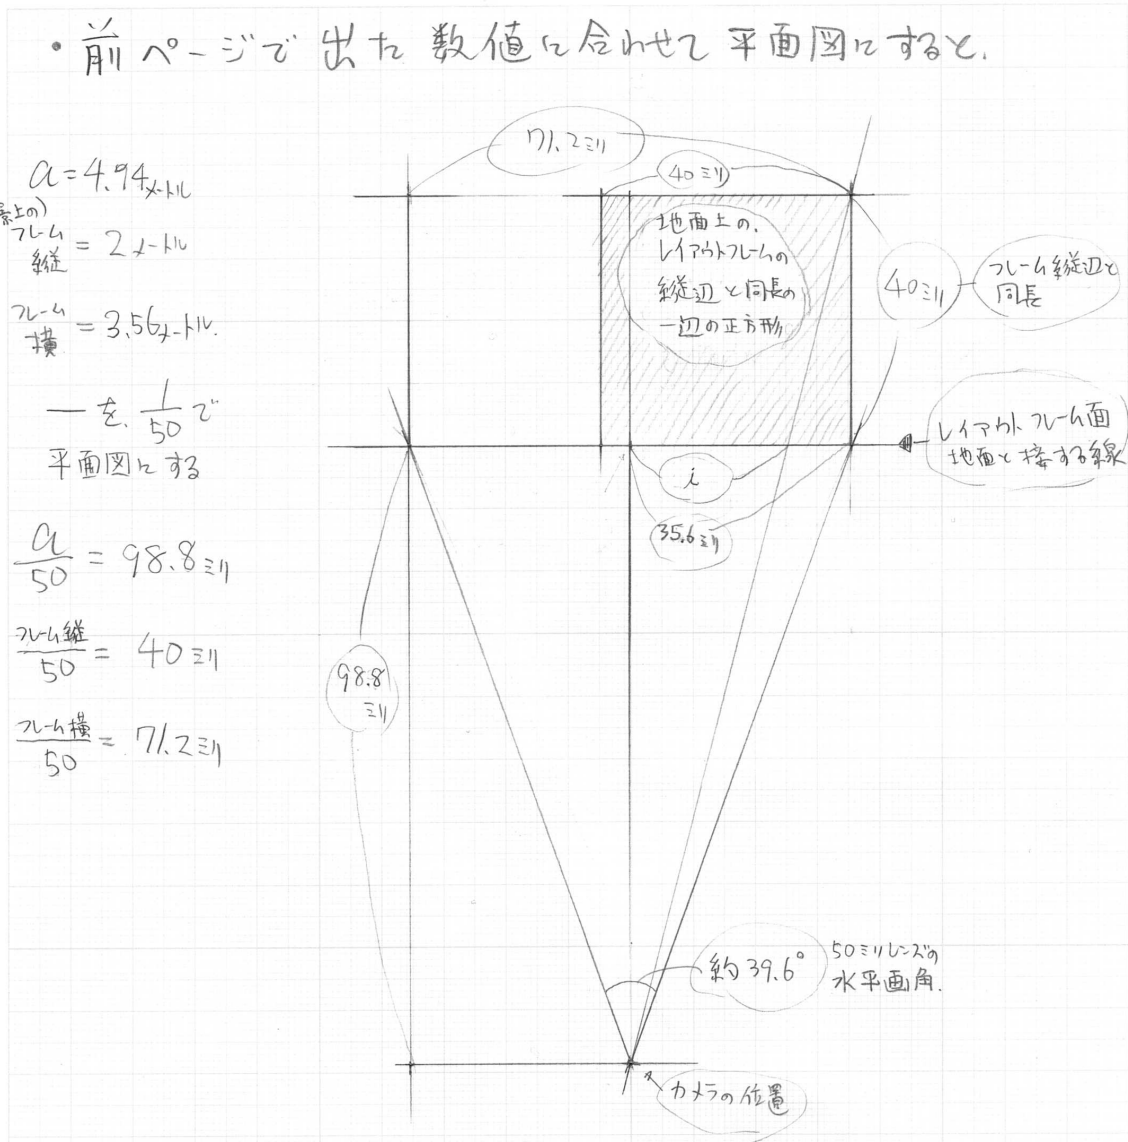 ・前ページで出た数値に合わせて平面図にすると、
a=4.94メートル
景上の)
フレーム
縦 = 2メートル
フレーム
横 = 3.56メートル.
—を、1/50で
平面図にする
a/50 = 98.8ミリ
フレーム縦/50 = 40ミリ
フレーム横/50 = 71.2ミリ
71.2ミリ
40ミリ
地面上の、
レイアウトフレームの
縦辺と同長の
一辺の正方形
40ミリ
フレーム縦辺と
同長
レイアウトフレーム面
地面と接する線
i
35.6ミリ
98.8
ミリ
約39.6°
50ミリレンズの
水平画角.
カメラの位置